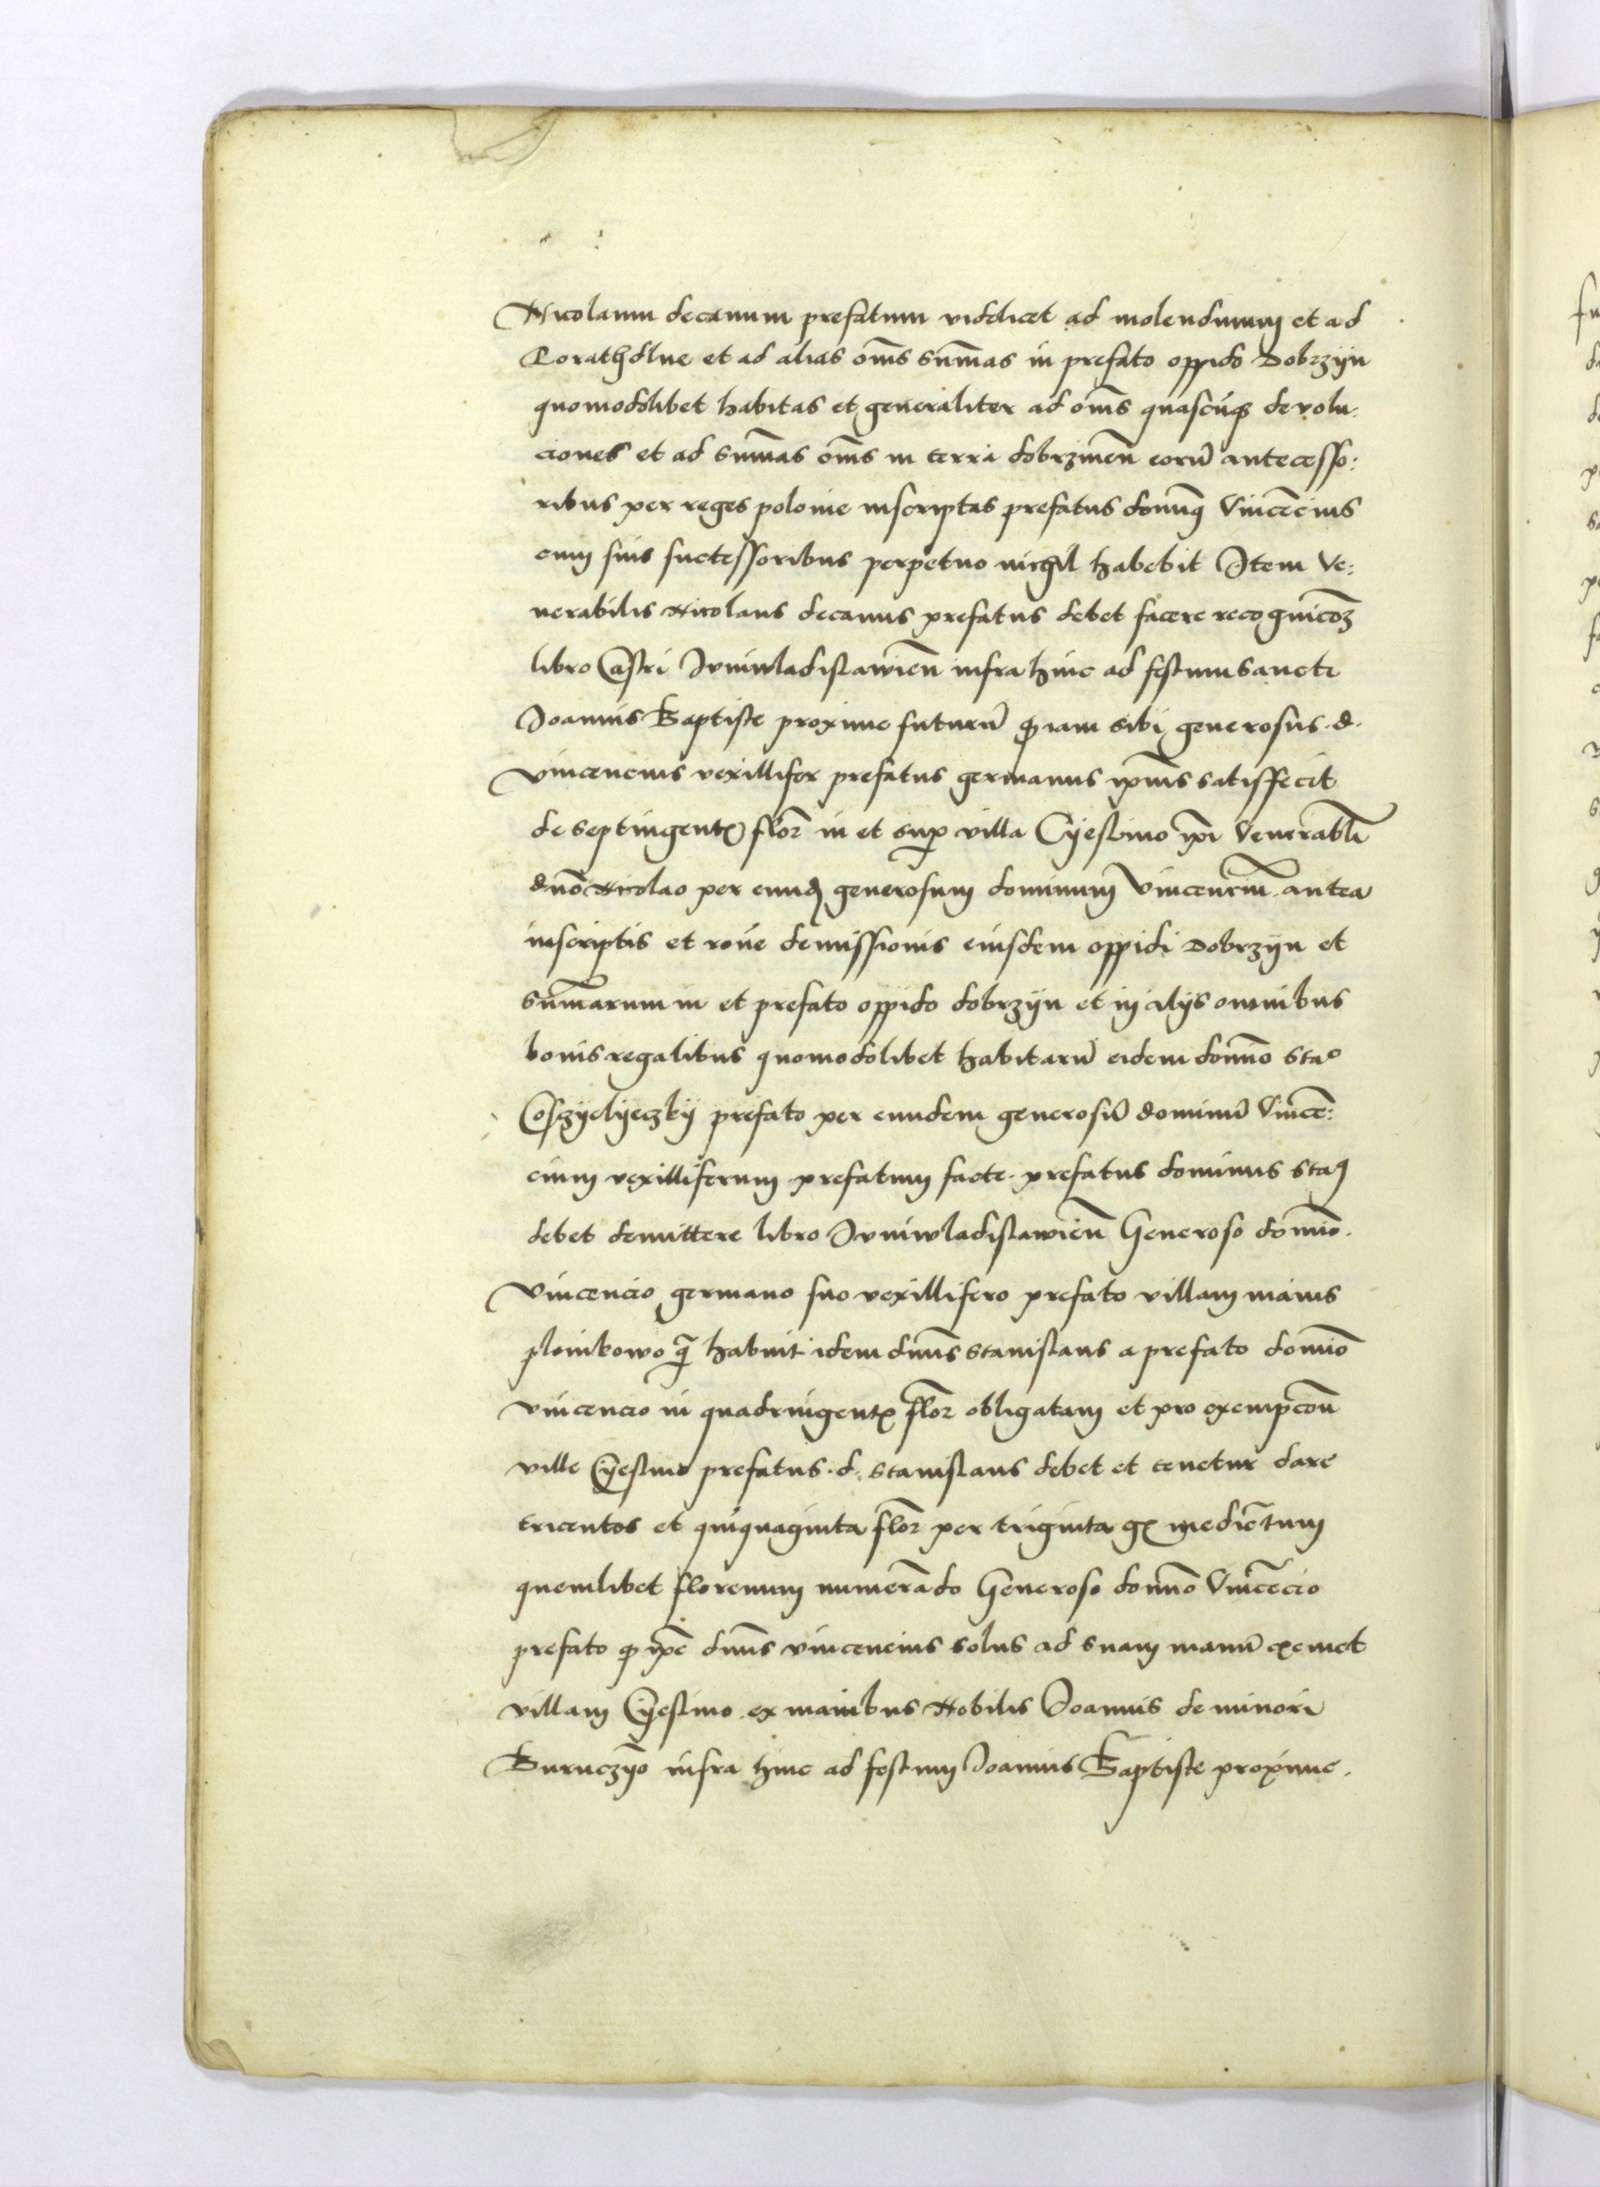 Nicolaum decanum prefatum videlicet ad molendinum et ad
et ad alias om̄s sum̄as in prefato oppido Dobrzijn
quomodolibet habitas et generaliter ad om̄s quascūq devolu-
ciones et ad sum̄as om̄s in terra dobrzinen̄ eorū antecesso:
ribus per reges polonie inscriptas prefatus domnq Vincēcius
cum suis successoribus perpetuo nichil habebit Item Ve:
nerabilis Nicolaus decanus prefatus debet facere recognicōꝫ
libro Castri Juniwladislawien̄ infra hinc ad festum sancti
Joannis Baptiste proxime futurū ꝙ iam sibi generosus .d.
Vincencius vexillifer prefatus germanus ip̄ius satisffecit
de septingentꝭ flor̄ in et sup̱ villa Cijeslino ip̄i Venerabli
dn̄o Nicolao per eundꝭ generosum dominum Vincenciū antea
inscriptis et rōne demissionis eiusdem oppidi Dobrzijn et
sum̄arum in et prefato oppido dobrzijn et in alijs omnibus
bonis regalibus quomodolibet habitarū eidem domno Sta⁰
Cosczijelijeczkij prefato per eundem generosū dominū Vincē:
cium vexilliferum prefatum facte. prefatus dominus Staꝰ
debet demittere libro Juniwladislawien̄ Generoso domīo.
Vincencio germano suo vexillifero prefato villam maius
plonkowo q̄ habuit idem dn̄us Stanislaus a prefato domīo
Vincencio in quadringentꝭ flor̄ obligatam et pro exempcōn
ville Cijeslino prefatus .d. Stanislaus debet et tenetur dare
tricentos et quiquaginta flor̄ per triginta gꝭ medietum
quemlibet florenum numerādo Generoso domno Vincēcio
prefato ꝙ ip̄e dn̄us Vincencius solus ad suam manū exemet
villam Cijeslino ex manibus Nobilis Joannis de minori
infra hinc ad festum Joannis Baptiste proxime.